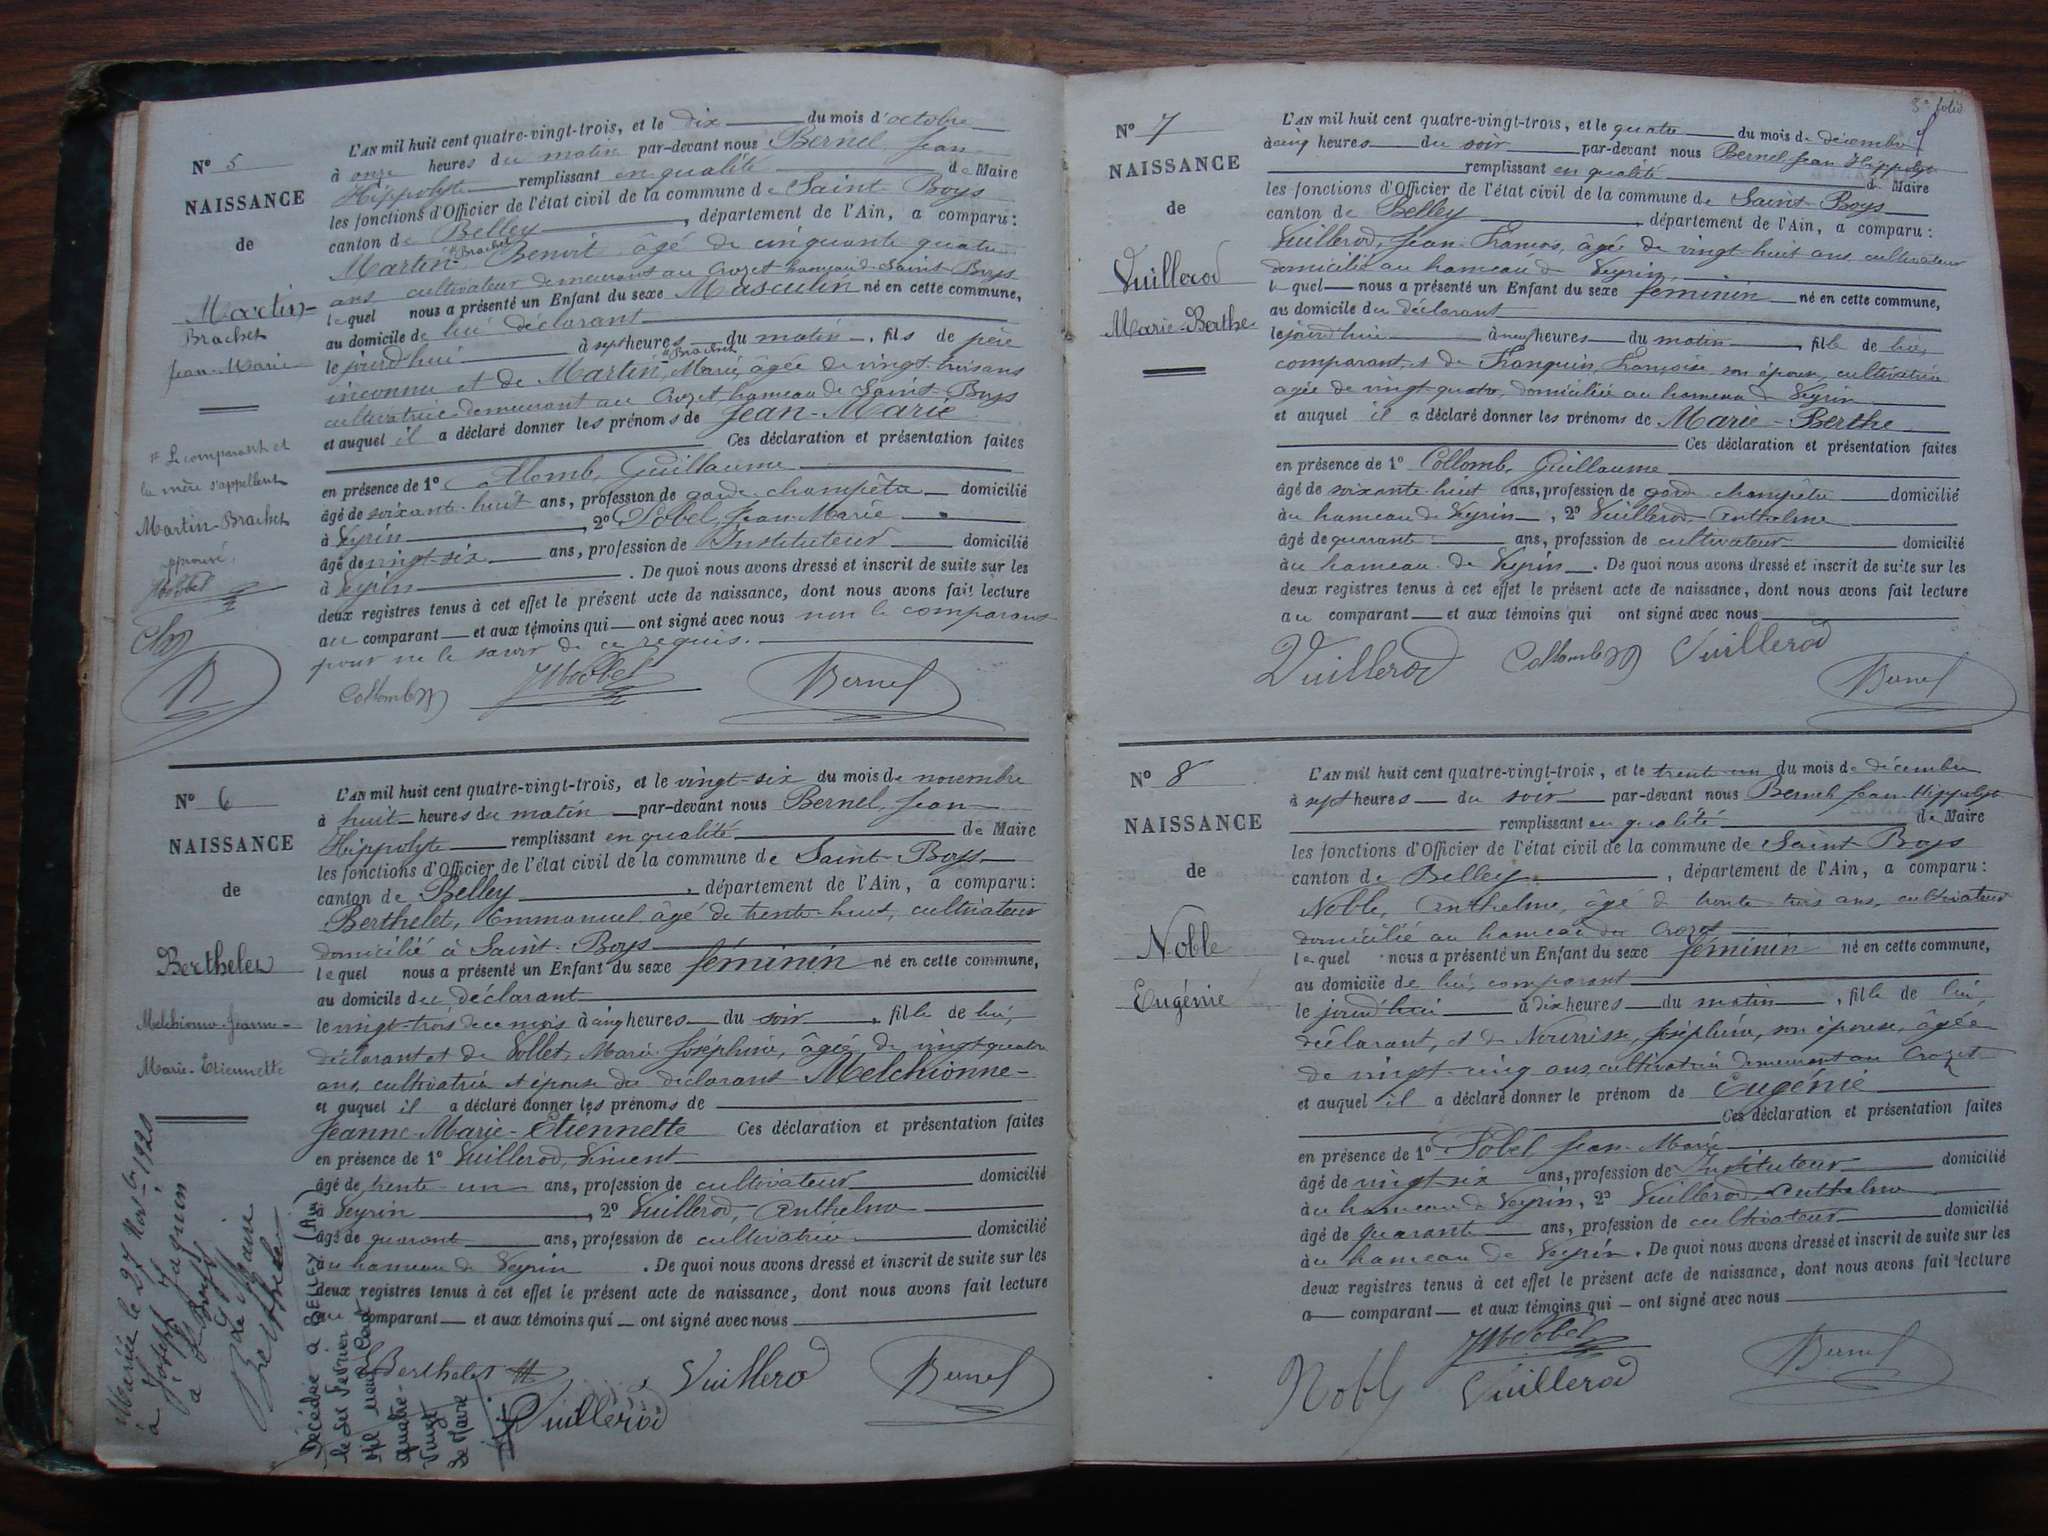 N° 5
NAISSANCE
de
Martin-
Brachet
Jean-Marie
L'AN mil huit cent quatre-vingt-trois, et le dix du mois d'octobre
à onze heures du matin par-devant nous Bernel, Jean
Hippolyte remplissant en qualité de Maire
les fonctions d'Officier de l'état civil de la commune de Saint-Boys
canton de Belley, département de l'Ain, a comparu :
Martin " Brachet Benoit âgé de cinquante quatre
ans cultivateur demeurant au Crozet hameau de Saint-Boys
lequel nous a présenté un Enfant du sexe Masculin né en cette commune,
au domicile de lui déclarant
le jourd'hui à sept heures du matin, fils de père
inconnu et de Martin " Brachet, Marie, âgée de vingt-trois ans
cultivatrice demeurant au Crozet hameau de Saint-Boys
et auquel il a déclaré donner les prénoms de Jean-Marie
Ces déclaration et présentation faites
en présence de 1° Collomb, Guillaume
âgé de soixante-huit ans, profession de garde champêtre domicilié
à Veyrin, 2° Pobel, Jean-Marie
âgé de vingt-six ans, profession de Instituteur domicilié
à Veyrin. De quoi nous avons dressé et inscrit de suite sur les
deux registres tenus à cet effet le présent acte de naissance, dont nous avons fait lecture
au comparant et aux témoins qui ont signé avec nous non le comparant
pour ne le savoir de ce requis.
Collomb JMPobel Bernel
" Le comparant et
la mère s'appellent
Martin-Brachet
approuvé
N° 6
NAISSANCE
de
Berthelet
Melchionne-Jeanne-
Marie-Etiennette
L'AN mil huit cent quatre-vingt-trois, et le vingt-six du mois de novembre
à huit heures du matin par-devant nous Bernel, Jean
Hippolyte remplissant en qualité de Maire
les fonctions d'Officier de l'état civil de la commune de Saint-Boys
canton de Belley, département de l'Ain, a comparu :
Berthelet, Emmanuel âgé de trente-huit, cultivateur
domicilié à Saint-Boys
lequel nous a présenté un Enfant du sexe féminin né en cette commune,
au domicile du déclarant
le vingt-trois de ce mois à cinq heures du soir, fille de lui,
déclarant et de Vollet, Marie Joséphine, âgée de vingt-quatre
ans, cultivatrice et épouse du déclarant Melchionne-
et auquel il a déclaré donner les prénoms de
Jeanne-Marie-Etiennette Ces déclaration et présentation faites
en présence de 1° Vuillerod, Vincent
âgé de trente-un ans, profession de cultivateur domicilié
à Veyrin, 2° Vuillerod, Anthelme
âgé de quarante ans, profession de cultivateur domicilié
au hameau de Veyrin. De quoi nous avons dressé et inscrit de suite sur les
deux registres tenus à cet effet le présent acte de naissance, dont nous avons fait lecture
au comparant et aux témoins qui ont signé avec nous
Berthelet Vuillerod Bernel
Vuillerod
Mariée le 27 Novbre 1920
à Joseph Jaquin
à St Boys
Le Maire
Berthelet
Décédée à BELLEY (Ain)
le dix Février
Mil neuf Cent
Quatre-
Vingt
Le Maire
3e folio
N° 7
NAISSANCE
de
Vuillerod
Marie-Berthe
L'AN mil huit cent quatre-vingt-trois, et le quatre du mois de décembre
à cinq heures du soir par-devant nous Bernel Jean Hippolyte
remplissant en qualité de Maire
les fonctions d'Officier de l'état civil de la commune de Saint-Boys
canton de Belley, département de l'Ain, a comparu :
Vuillerod, Jean-François, âgée de vingt-huit ans, cultivateur
domicilié au hameau de Veyrin
lequel nous a présenté un Enfant du sexe féminin né en cette commune,
au domicile du déclarant
le jourd'hui à neuf heures du matin, fille de lui,
comparant, et de Françoise son épouse, cultivatrice
agée de vingt-quatre, domiciliée au hameau de Veyrin
et auquel il a déclaré donner les prénoms de Marie-Berthe
Ces déclaration et présentation faites
en présence de 1° Collomb, Guillaume
âgé de soixante-huit ans, profession de garde champêtre domicilié
au hameau de Veyrin, 2° Vuillerod, Anthelme
âgé de quarante ans, profession de cultivateur domicilié
au hameau de Veyrin. De quoi nous avons dressé et inscrit de suite sur les
deux registres tenus à cet effet le présent acte de naissance, dont nous avons fait lecture
au comparant et aux témoins qui ont signé avec nous
Vuillerod Collomb Vuillerod
Bernel
N° 8
NAISSANCE
de
Noble
Eugénie
L'AN mil huit cent quatre-vingt-trois, et le trente-un du mois de décembre
à sept heures du soir par-devant nous Bernel Jean-Hippolyte
remplissant en qualité de Maire
les fonctions d'Officier de l'état civil de la commune de Saint-Boys
canton de Belley, département de l'Ain, a comparu :
Noble, Anthelme, âgé de trente-trois ans, cultivateur
domicilié au hameau du Crozet
lequel nous a présenté un Enfant du sexe féminin né en cette commune,
au domicile de lui, comparant
le jourd'hui à dix heures du matin, fille de lui,
déclarant, et de Nourrisse, Joséphine, son épouse, âgée
de vingt-cinq ans, cultivatrice demeurant au Crozet
et auquel il a déclaré donner le prénom de Eugénie
Ces déclaration et présentation faites
en présence de 1° Pobel, Jean-Marie
âgé de vingt-six ans, profession de Instituteur domicilié
au hameau de Veyrin, 2° Vuillerod, Anthelme
âgé de quarante ans, profession de cultivateur domicilié
au hameau de Veyrin. De quoi nous avons dressé et inscrit de suite sur les
deux registres tenus à cet effet le présent acte de naissance, dont nous avons fait lecture
a comparant et aux témoins qui ont signé avec nous
JMPobel
Noble Vuillerod Bernel